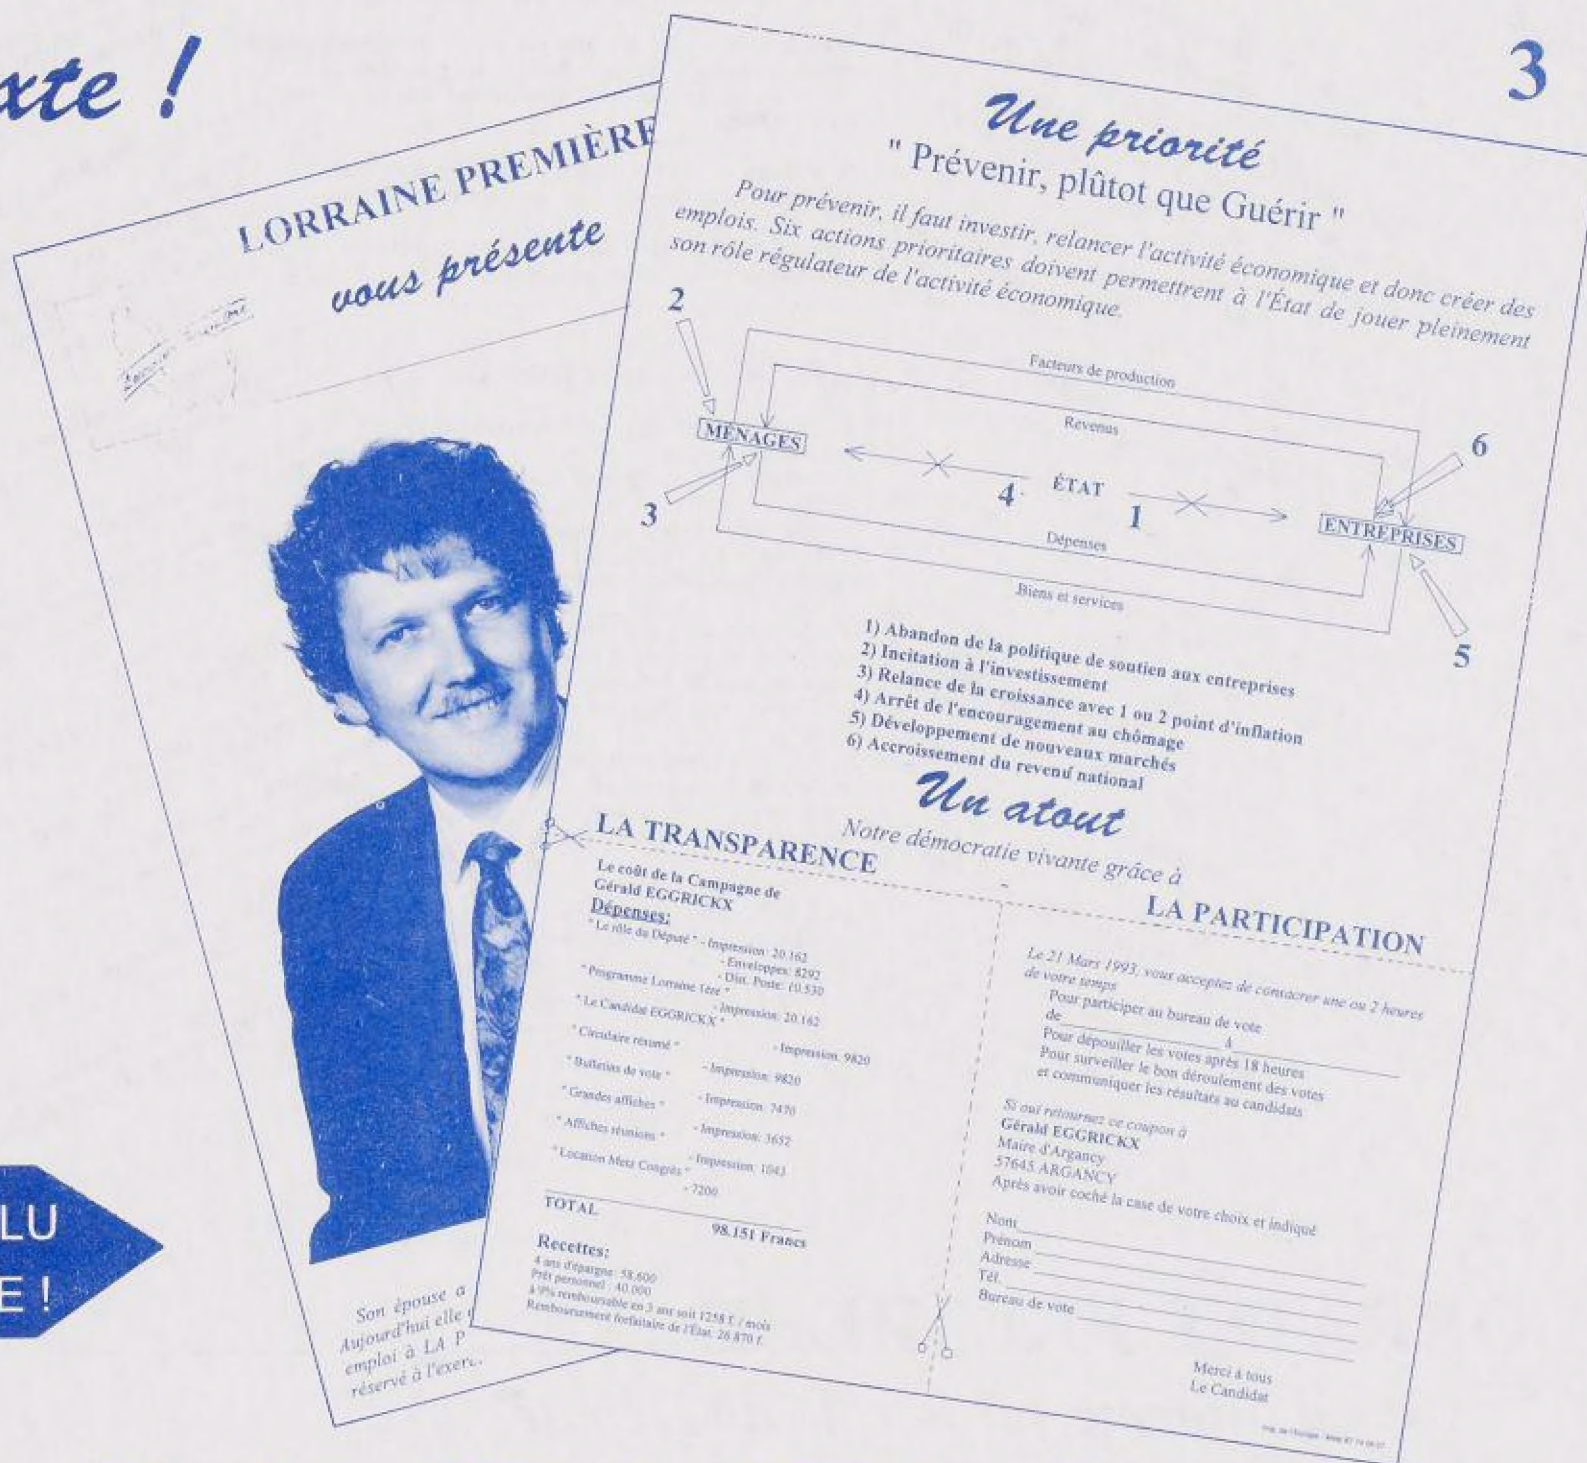 xte !
3
LORRAINE PREMIÈRE
vous présente
Son épouse a
Aujourd'hui elle
emploi à LA P
réservé à l'exerc
LU
E !
Une priorité
" Prévenir, plûtot que Guérir "
Pour prévenir, il faut investir, relancer l'activité économique et donc créer des
emplois. Six actions prioritaires doivent permettrent à l'État de jouer pleinement
son rôle régulateur de l'activité économique.
2
Facteurs de production
Revenus
MÉNAGES
6
ÉTAT
4
1
3
ENTREPRISES
Dépenses
Biens et services
5
1) Abandon de la politique de soutien aux entreprises
2) Incitation à l'investissement
3) Relance de la croissance avec 1 ou 2 point d'inflation
4) Arrêt de l'encouragement au chômage
5) Développement de nouveaux marchés
6) Accroissement du revenu national
Un atout
Notre démocratie vivante grâce à
LA TRANSPARENCE
Le coût de la Campagne de
Gérald EGGRICKX
Dépenses:
" Le rôle du Député " - Impression: 20.162
- Enveloppes: 8292
- Dist. Poste: 10.530
" Programme Lorraine 1ère "
- Impression: 20.162
" Le Candidat EGGRICKX "
- Impression: 9820
" Circulaire résumé "
- Impression: 9820
" Bulletins de vote "
- Impression: 7470
" Grandes affiches "
- Impression: 3652
" Affiches réunions "
- Impression: 1043
" Location Metz Congrès "
- 7200
TOTAL
98.151 Francs
Recettes:
4 ans d'épargne: 58.600
Prêt personnel : 40.000
à 9% remboursable en 3 ans soit 1258 f. / mois
Remboursement forfaitaire de l'État: 26.870 f.
LA PARTICIPATION
Le 21 Mars 1993, vous acceptez de consacrer une ou 2 heures
de votre temps
Pour participer au bureau de vote
de à
Pour dépouiller les votes après 18 heures
Pour surveiller le bon déroulement des votes
et communiquer les résultats au candidats
Si oui retournez ce coupon à
Gérald EGGRICKX
Maire d'Argancy
57645 ARGANCY
Après avoir coché la case de votre choix et indiqué
Nom
Prénom
Adresse
Tél.
Bureau de vote
Merci à tous
Le Candidat